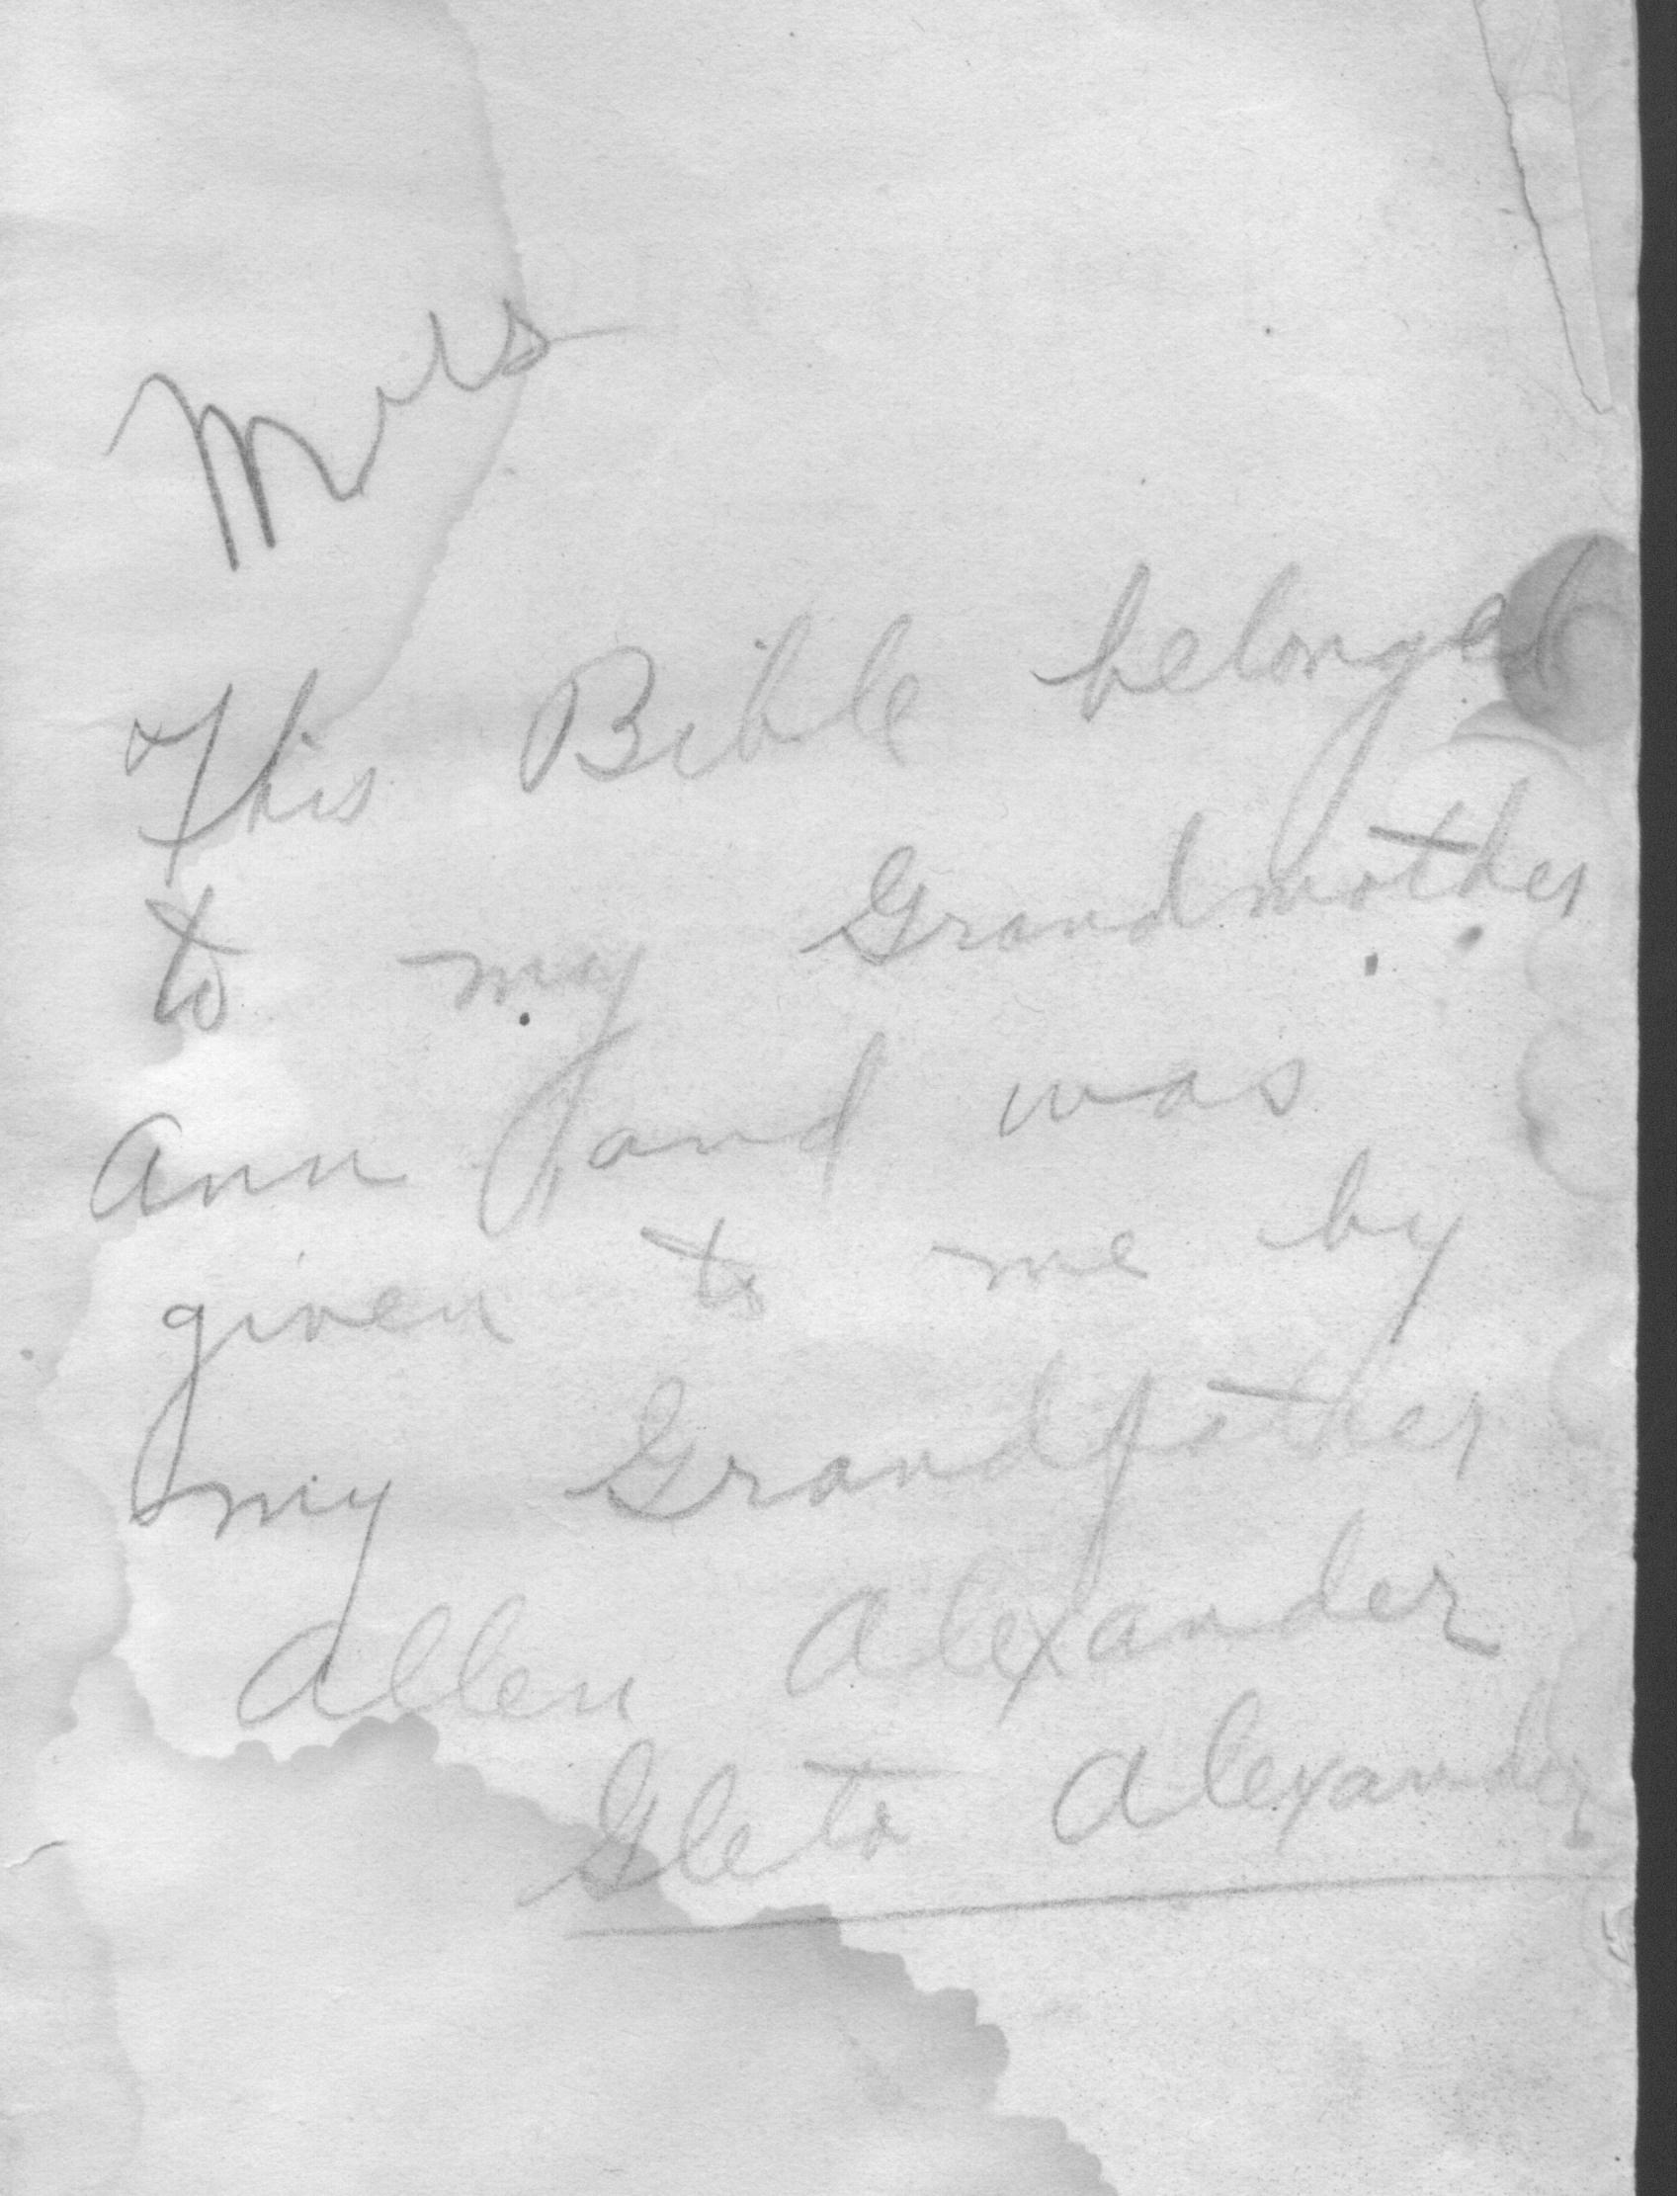 Mrs
This Bible belonged
to my Grandmother
Ann and was
given to me by
my Grandfather
Allen Alexander
Gleta Alexander